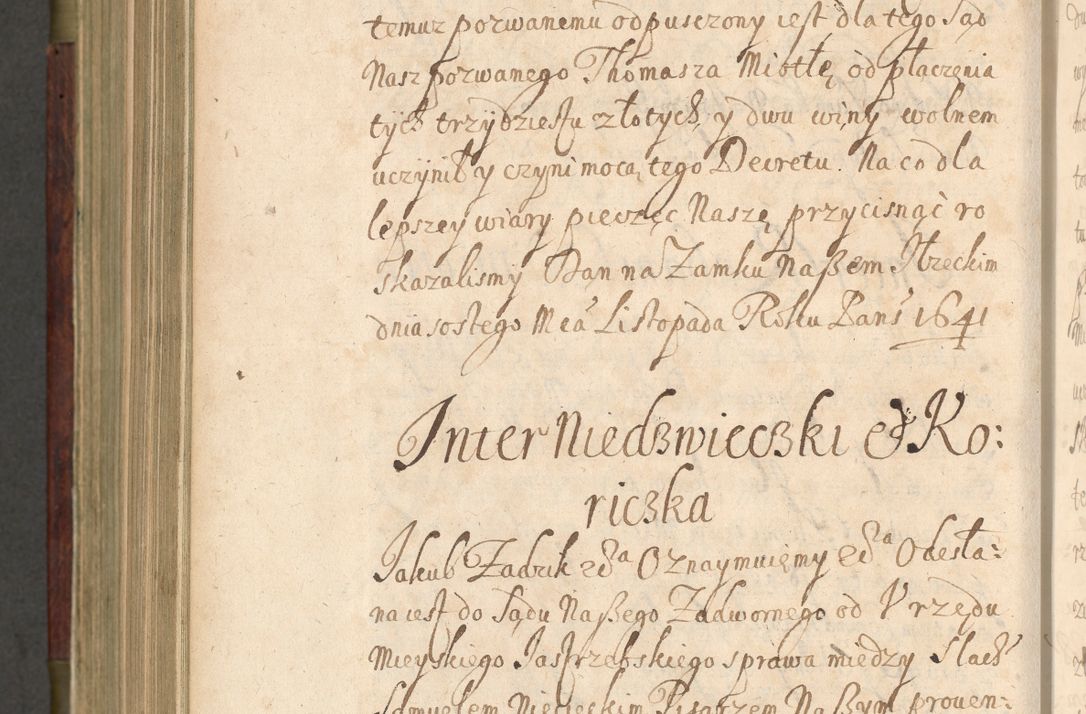 temuz pozwanemu odpusczony iest dla tego Sąd
Nasz pozwanego Thomasza Miotłę od płaczenia
tych trzydziestu złotych, y dwu winy wolnem
uczynił y czyni mocą tego Decretu. Na co dla
lepszey wiary pieczęc Naszę przycisnąć ro
skazalismy Dan na Zamku Naßem Iłzeckim
dnia sostego Mca Listopada Roku Pans 1641
Inter Niedzwieczki & Ko:
riczka
Jakub Zadzik &c&a Oznaymuięmy &c&a Odesła:
na iest do Sądu Naßego Zadwornego od Vrzędu
Mieyskiego Jastrzębskiego sprawa między Slach
Samuelem Pisarzem Naßym proven: